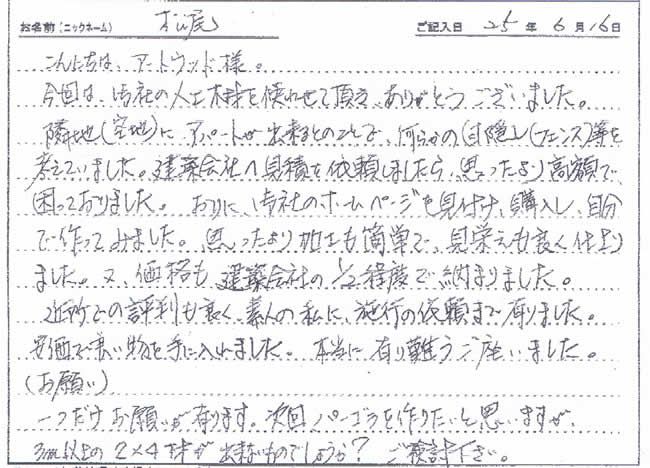 お名前（ニックネーム） 松尾 ご記入日 25 年 6 月 16 日
こんにちは、アートウッド様。
今回は、御社の人工木材を使わせて頂き、ありがとうございました。
隣地（空地）にアパートが出来るとのことで、何らかの（目隠し（フェンス）等を
考えていました。建築会社へ見積を依頼しましたら、思ったより高額で、
困っておりました。おりに、御社のホームページを見付け、購入し、自分
で作ってみました。思ったより加工も簡単で、見栄えも良く仕上り
ました。又、価格も建築会社の1/2程度で納まりました。
近所での評判も良く、素人の私に、施行の依頼まで有りました。
安価で良い物を手に入れました。本当に有り難うご座いました。
（お願い）
一つだけお願いが有ります。次回パーゴラを作りたいと思いますが、
3m以上の2×4材が出来ないものでしょうか？ご検討下さい。